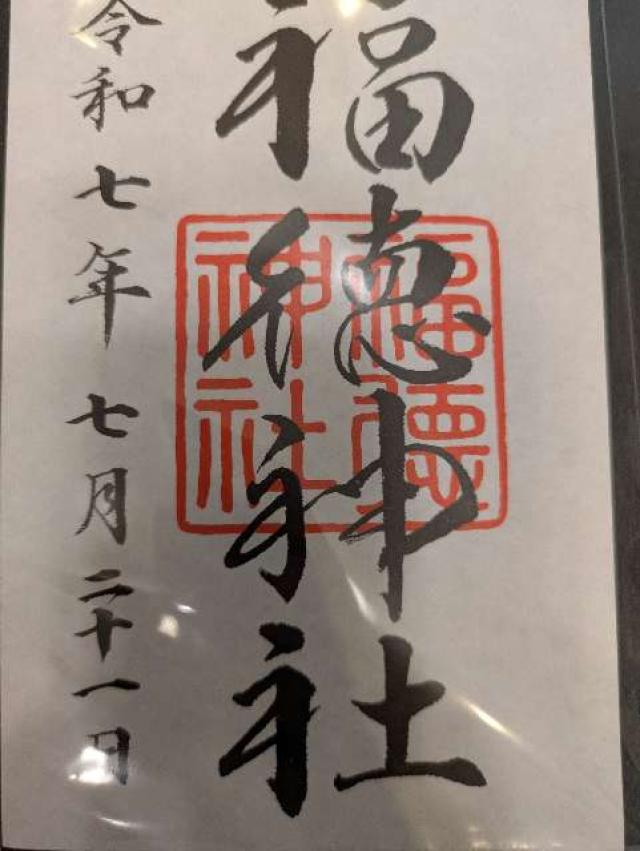 福徳神社
福徳神社
令和七年七月二十一日